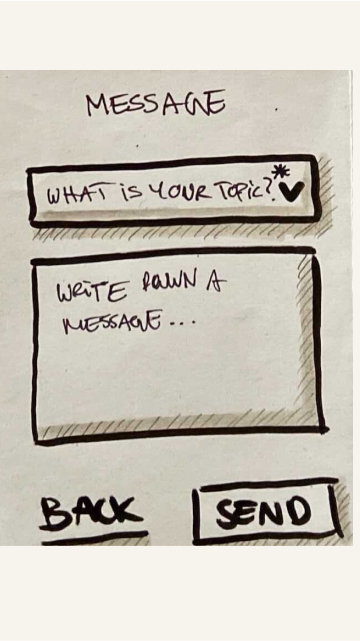 MESSAGE
WHAT iS YOUR TOPiC?*
WRiTE DOWN A
MESSAGE...
BACK
SEND